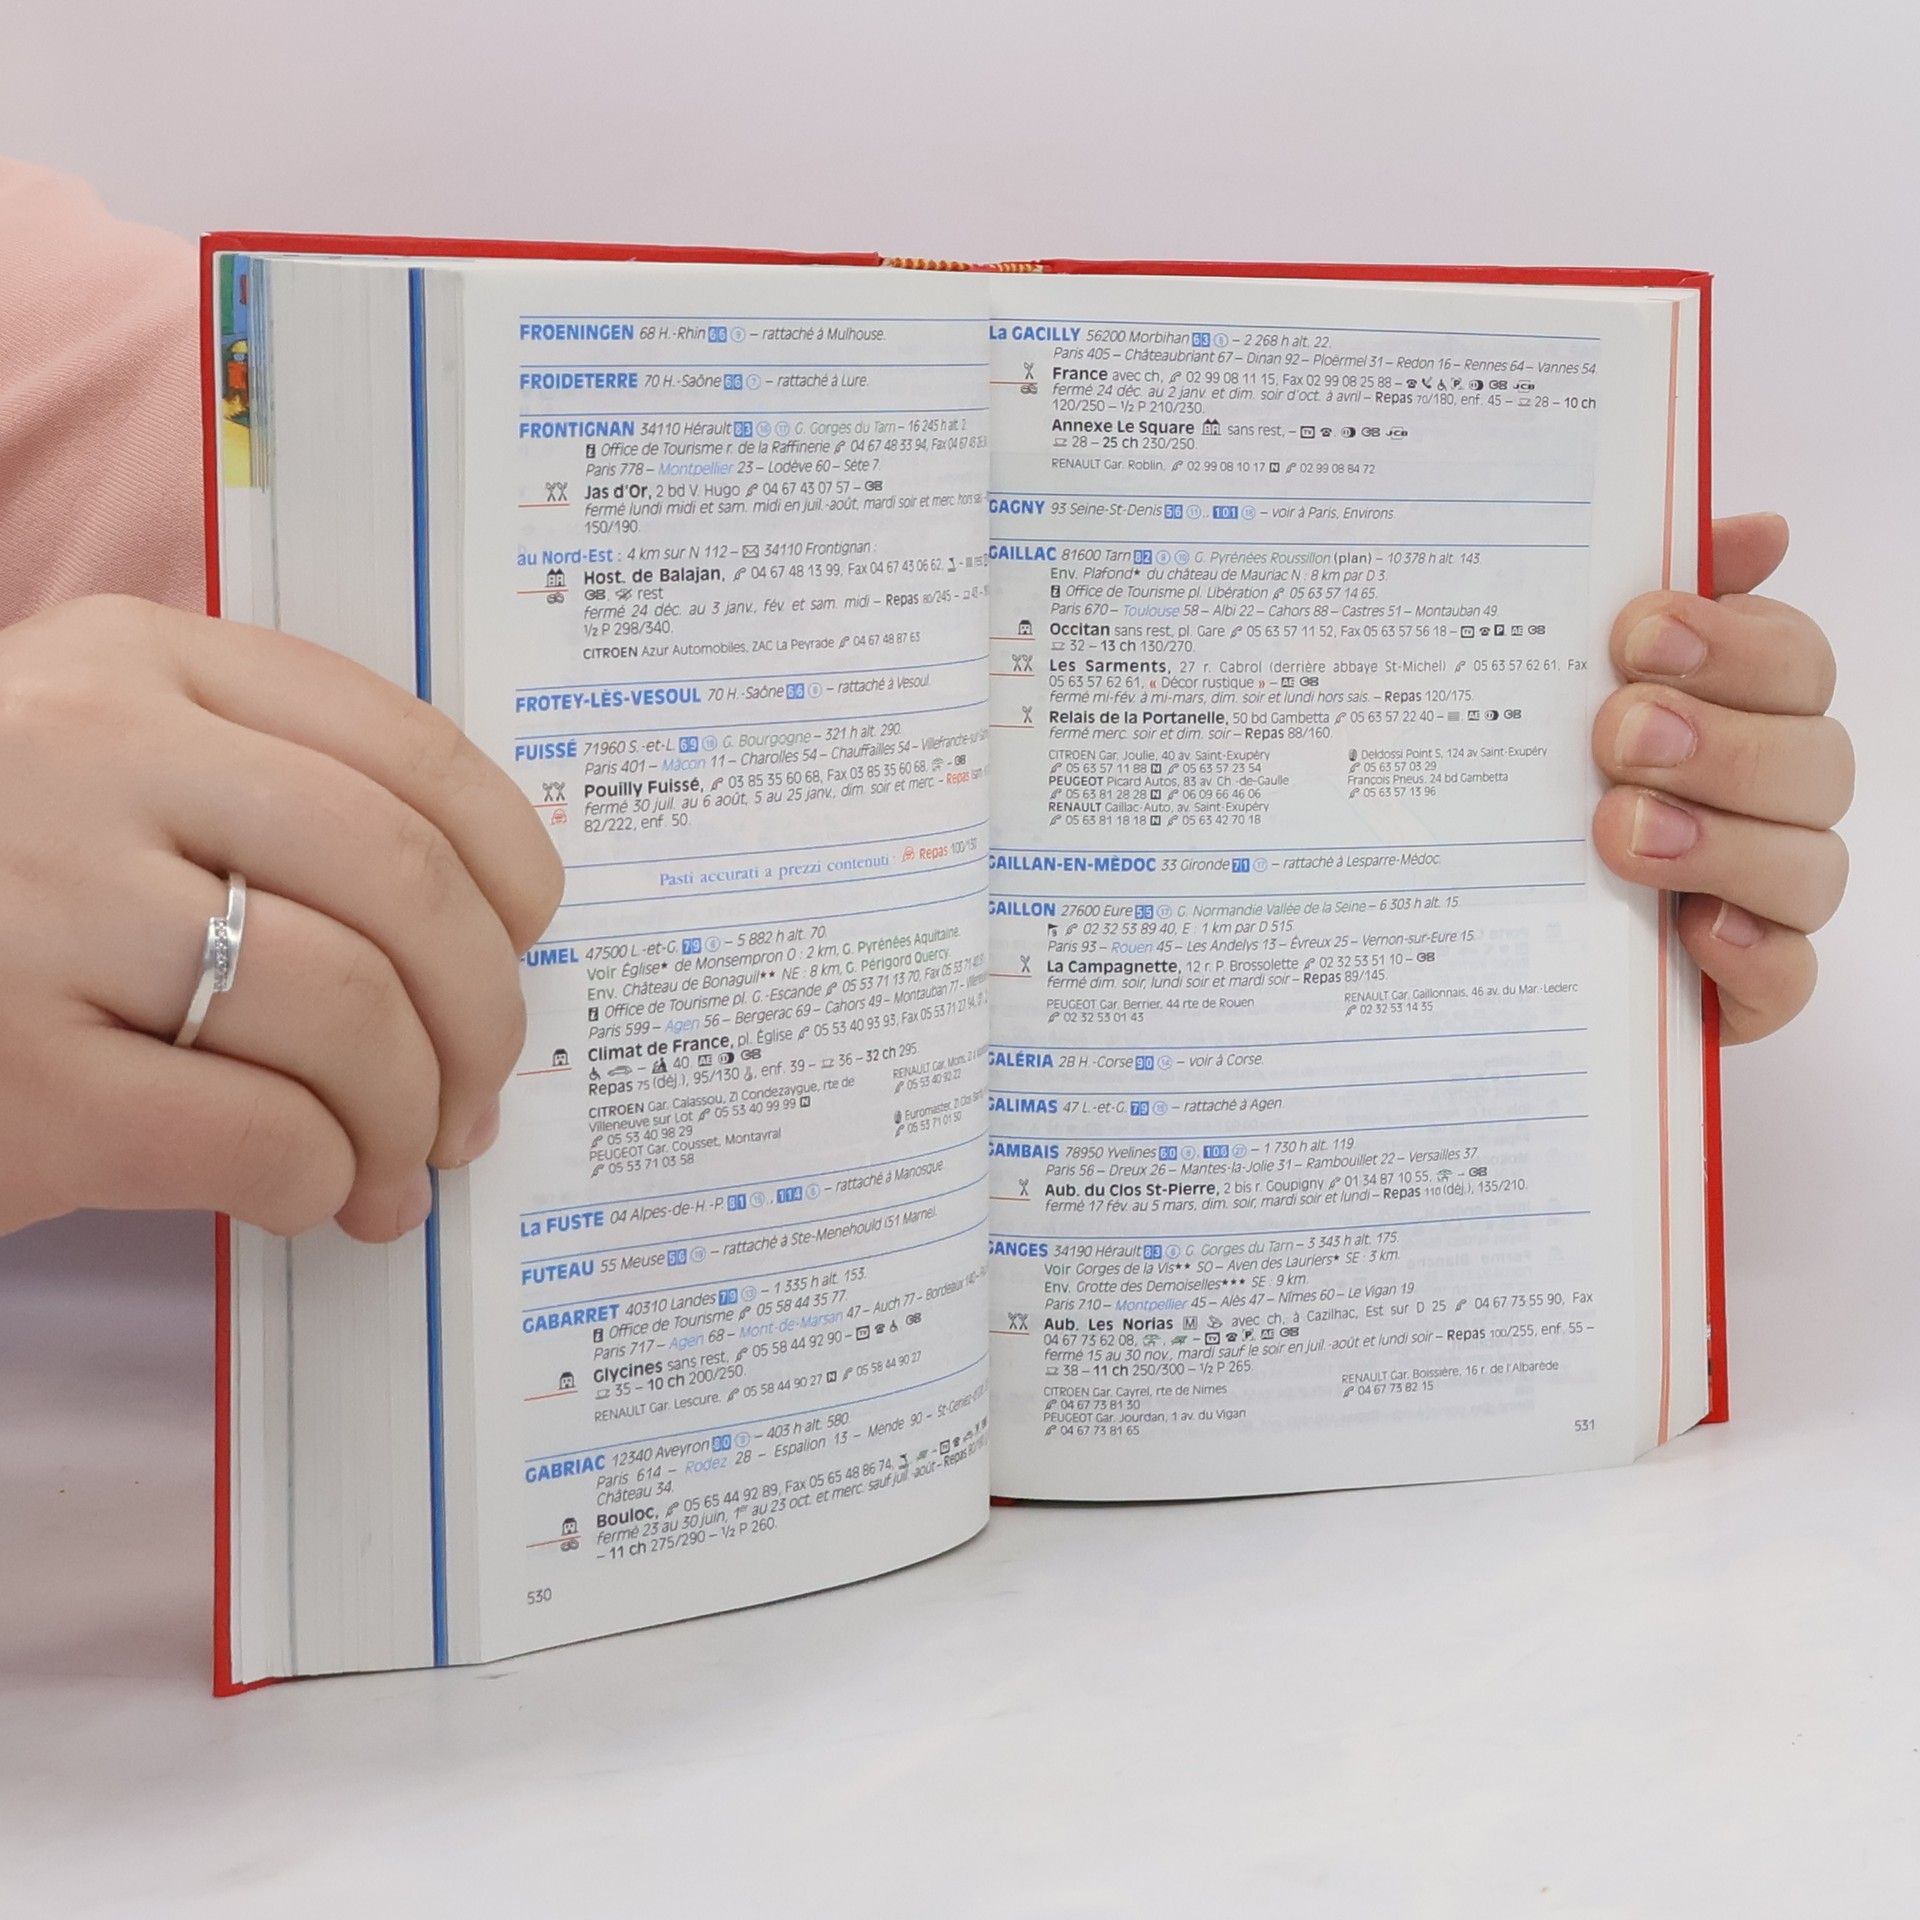 FROENINGEN 68 H.-Rhin 66 9 – rattaché à Mulhouse.
FROIDETERRE 70 H.-Saône 66 7 – rattaché à Lure.
FRONTIGNAN 34110 Hérault 83 16 17 G. Gorges du Tarn – 16 245 h alt. 2.
Office de Tourisme r. de la Raffinerie 04 67 48 33 94, Fax 04 67 43
Paris 778 – Montpellier 23 – Lodève 60 – Sète 7.
Jas d'Or, 2 bd V. Hugo 04 67 43 07 57 – GB
fermé lundi midi et sam. midi en juil.-août, mardi soir et merc. hors sai
150/190.
au Nord-Est : 4 km sur N 112 – 34110 Frontignan :
Host. de Balajan, 04 67 48 13 99, Fax 04 67 43 06 62,
GB. rest
fermé 24 déc. au 3 janv., fév. et sam. midi – Repas 80/245 – 43
½ P 298/340.
CITROEN Azur Automobiles, ZAC La Peyrade 04 67 48 87 63
FROTEY-LÈS-VESOUL 70 H.-Saône 66 6 – rattaché à Vesoul.
FUISSÉ 71960 S.-et-L. 69 19 G. Bourgogne – 321 h alt. 290.
Paris 401 – Mâcon 11 – Charolles 54 – Chauffailles 54 – Villefranche-sur-
Pouilly Fuissé, 03 85 35 60 68, Fax 03 85 35 60 68, – GB
fermé 30 juil. au 6 août, 5 au 25 janv., dim. soir et merc. – Repas
82/222, enf. 50.
Pasti accurati a prezzi contenuti : Repas 100/130
UMEL 47500 L.-et-G. 79 6 – 5 882 h alt. 70.
Voir Église* de Monsempron O : 2 km, G. Pyrénées Aquitaine.
Env. Château de Bonaguil** NE : 8 km, G. Périgord Quercy.
Office de Tourisme pl. G.-Escande 05 53 71 13 70, Fax 05 53 71 40
Paris 599 – Agen 56 – Bergerac 69 – Cahors 49 – Montauban 77 –
Climat de France, pl. Église 05 53 40 93 93, Fax 05 53 71 27 94,
– 40. AE GB
Repas 75 (déj.), 95/130, enf. 39 – 36 – 32 ch 295.
CITROEN Gar. Calassou, ZI Condezaygue, rte de
Villeneuve sur Lot 05 53 40 99 99 N
05 53 40 98 29
PEUGEOT Gar. Cousset, Montayral
05 53 71 03 58
RENAULT Gar.
05 53 40 92 22
Euromaster,
05 53 71 01 50
La FUSTE 04 Alpes-de-H.-P. 81 15, 114 6 – rattaché à Manosque.
FUTEAU 55 Meuse 56 19 – rattaché à Ste-Menehould (51 Marne).
GABARRET 40310 Landes 79 13 – 1 335 h alt. 153.
Office de Tourisme 05 58 44 35 77.
Paris 717 – Agen 68 – Mont-de-Marsan 47 – Auch 77 – Bordeaux 140 –
Glycines sans rest, 05 58 44 92 90 – TV GB
35 – 10 ch 200/250.
RENAULT Gar. Lescure, 05 58 44 90 27 N 05 58 44 90 27
GABRIAC 12340 Aveyron 80 3 – 403 h alt. 580.
Paris 614 – Rodez 28 – Espalion 13 – Mende 90 –
Château 34.
Bouloc, 05 65 44 92 89, Fax 05 65 48 86 74,
fermé 23 au 30 juin, 1er au 23 oct. et merc. sauf juil.-août – Repas
– 11 ch 275/290 – ½ P 260.
530
La GACILLY 56200 Morbihan 63 5 – 2 268 h alt. 22.
Paris 405 – Châteaubriant 67 – Dinan 92 – Ploërmel 31 – Redon 16 – Rennes 64 – Vannes 54.
France avec ch, 02 99 08 11 15, Fax 02 99 08 25 88 – P. GB JCB
fermé 24 déc. au 2 janv. et dim. soir d'oct. à avril – Repas 70/180, enf. 45 – 28 – 10 ch
120/250 – ½ P 210/230.
Annexe Le Square sans rest, – TV GB JCB
28 – 25 ch 230/250.
RENAULT Gar. Roblin, 02 99 08 10 17 N 02 99 08 84 72
GAGNY 93 Seine-St-Denis 56 11, 101 18 – voir à Paris, Environs.
GAILLAC 81600 Tarn 82 9 10 G. Pyrénées Roussillon (plan) – 10 378 h alt. 143.
Env. Plafond* du château de Mauriac N : 8 km par D 3.
Office de Tourisme pl. Libération 05 63 57 14 65.
Paris 670 – Toulouse 58 – Albi 22 – Cahors 88 – Castres 51 – Montauban 49.
Occitan sans rest, pl. Gare 05 63 57 11 52, Fax 05 63 57 56 18 – TV P. AE GB
32 – 13 ch 130/270.
Les Sarments, 27 r. Cabrol (derrière abbaye St-Michel) 05 63 57 62 61, Fax
05 63 57 62 61, « Décor rustique » – AE GB
fermé mi-fév. à mi-mars, dim. soir et lundi hors sais. – Repas 120/175.
Relais de la Portanelle, 50 bd Gambetta 05 63 57 22 40 – AE GB
fermé merc. soir et dim. soir – Repas 88/160.
CITROEN Gar. Joulie, 40 av. Saint-Exupéry
05 63 57 11 88 N 05 63 57 23 54
PEUGEOT Picard Autos, 83 av. Ch.-de-Gaulle
05 63 81 28 28 N 06 09 66 46 06
RENAULT Gaillac-Auto, av. Saint-Exupéry
05 63 81 18 18 N 05 63 42 70 18
Deldossi Point S, 124 av Saint-Exupéry
05 63 57 03 29
François Pneus, 24 bd Gambetta
05 63 57 13 96
GAILLAN-EN-MÉDOC 33 Gironde 71 17 – rattaché à Lesparre-Médoc.
GAILLON 27600 Eure 55 17 G. Normandie Vallée de la Seine – 6 303 h alt. 15.
02 32 53 89 40, E : 1 km par D 515.
Paris 93 – Rouen 45 – Les Andelys 13 – Évreux 25 – Vernon-sur-Eure 15.
La Campagnette, 12 r. P. Brossolette 02 32 53 51 10 – GB
fermé dim. soir, lundi soir et mardi soir – Repas 89/145.
PEUGEOT Gar. Berrier, 44 rte de Rouen
02 32 53 01 43
RENAULT Gar. Gaillonnais, 46 av. du Mar.-Leclerc
02 32 53 14 35
GALÉRIA 2B H.-Corse 90 14 – voir à Corse.
GALIMAS 47 L.-et-G. 79 15 – rattaché à Agen.
GAMBAIS 78950 Yvelines 60 8, 106 27 – 1 730 h alt. 119.
Paris 56 – Dreux 26 – Mantes-la-Jolie 31 – Rambouillet 22 – Versailles 37.
Aub. du Clos St-Pierre, 2 bis r. Goupigny 01 34 87 10 55, – GB
fermé 17 fév. au 5 mars, dim. soir, mardi soir et lundi – Repas 110 (déj.), 135/210.
GANGES 34190 Hérault 83 6 G. Gorges du Tarn – 3 343 h alt. 175.
Voir Gorges de la Vis** SO – Aven des Lauriers* SE : 3 km.
Env. Grotte des Demoiselles*** SE : 9 km.
Paris 710 – Montpellier 45 – Alès 47 – Nîmes 60 – Le Vigan 19.
Aub. Les Norias M avec ch, à Cazilhac, Est sur D 25 04 67 73 55 90, Fax
04 67 73 62 08, – TV P. AE GB
fermé 15 au 30 nov., mardi sauf le soir en juil.-août et lundi soir – Repas 100/255, enf. 55 –
38 – 11 ch 250/300 – ½ P 265.
CITROEN Gar. Cayrel, rte de Nimes
04 67 73 81 30
PEUGEOT Gar. Jourdan, 1 av. du Vigan
04 67 73 81 65
RENAULT Gar. Boissière, 16 r. de l'Albarède
04 67 73 82 15
531